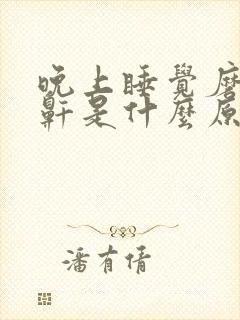 晚上睡覺磨
鼾是什麼原
潘有倩